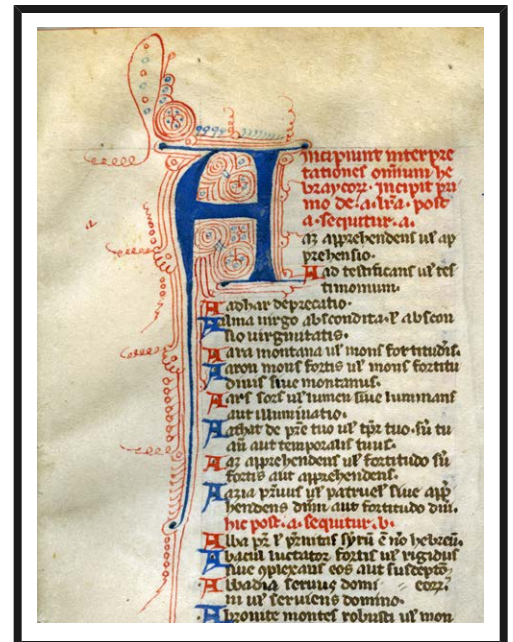 Incipiunt interpre
tationes omnium he
braycorꝝ. incipit pri
mo de .a. lr̄a. post
.a. sequitur .a.
Aaz apprehendens ul̓ ap
prehensio.
Aad testificans ul̓ tes
timonium.
Aadhar deprecatio.
Aalma uirgo abscondita. ul̓ abscon
sio uirginitatis.
Aara montana ul̓ mons fortitudis.
Aaron mons fortis ul̓ mons fortitu
dinis siue montanus.
Aars sors ul̓ lumen siue luminans
aut illuminatio.
de pr̄e tuo ul̓ tp̄r tuo. sū tu
aū aut temporalis tuus.
Aaz apprehendens ul̓ fortitudo sū
fortis aut apprehendens.
Aazia ul̓ patruel̓ siue app̄
hendens dn̄m aut fortitudo dn̄i.
hic post .a. sequitur .b.
Abba pr̄ syrū ē nō hebreū.
Abacuc luctator fortis ul̓ rigidus
siue aplexans eos aut susceptō
Abbadia seruus domi corꝝ.
ni ul̓ seruiens domino.
montes robusti ul̓ mon